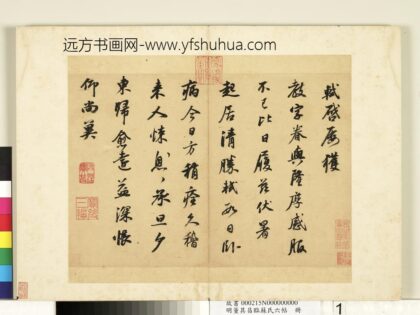 远方书画网-www.yfshuhua.com
軾啓屢獲
教字眷與隆厚感服
不已比日履茲伏暑
起居清勝軾數日卧
病今日方稍痊久稽
來人悚息〻承旦夕
東歸愈遠益深悵
仰尚冀
故書 000215N000000000
明董其昌臨蘇氏六帖 冊
1